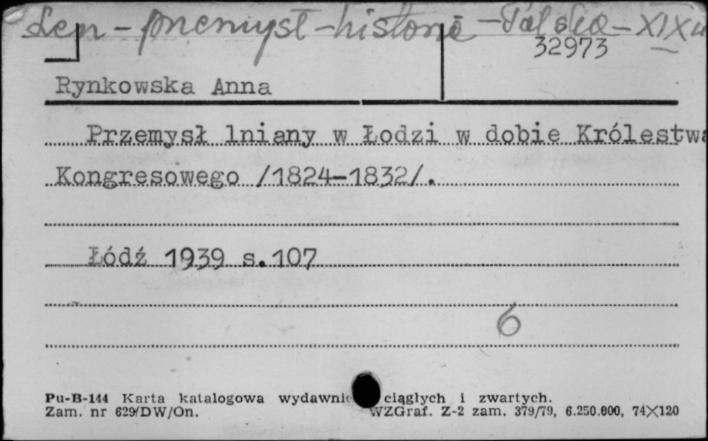 Len - przemysł - historia - Polska - XIX w
32973
Rynkowska Anna
Przemysł lniany w Łodzi w dobie Królestwa
Kongresowego /1824-1832/.
Łódź 1939 s.107
6
Pu-B-144 Karta katalogowa wydawnic ciągłych i zwartych.
Zam. nr 629/DW/On. WZGraf. Z-2 zam. 379/79, 6.250.000, 74×120